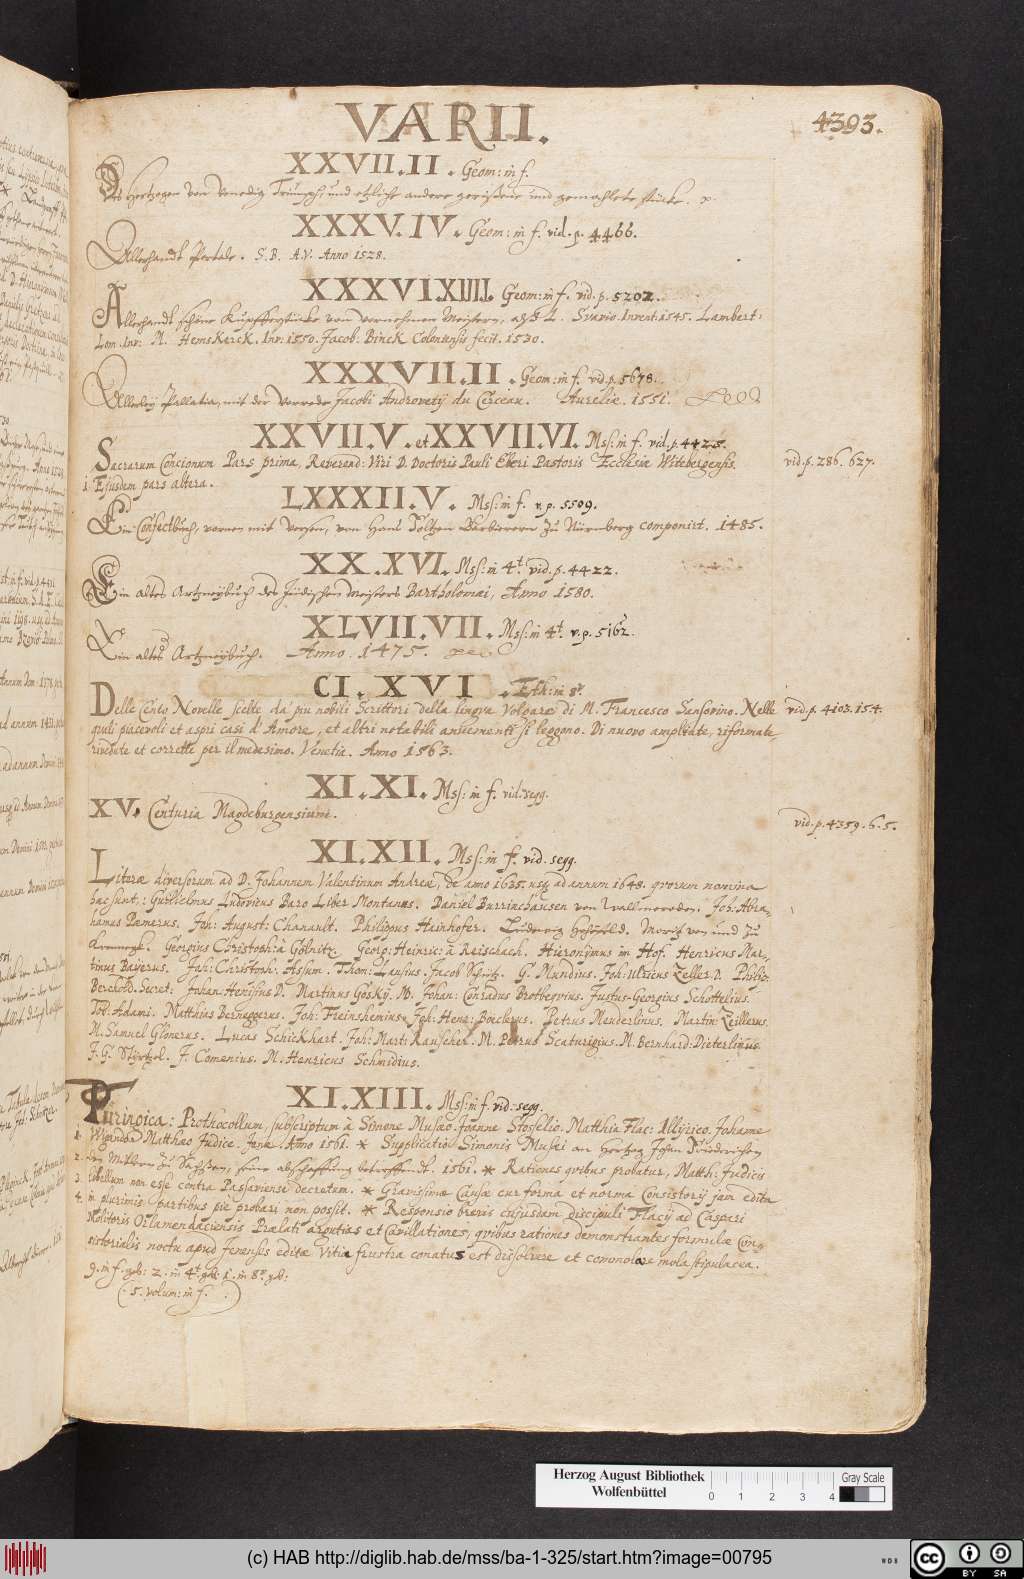 VARII.
4393.
XXVII.II. Geom: in f.
Des Hertzogen von Venedig Triumph, und etzliche andere gerissene und gemahlete stücke.
XXXV.IV. Geom: in f. vid. p. 4466.
Allerhandt Portale. S.B. A.V. Anno 1528.
XXXVI.XIIII. Geom: in f. vid. p. 5202.
Allerhandt schöne Kupfferstücke von vornehmen Meistern, als L. Svavio. Invent. 1545. Lambert:
Lom. Inv: M. HemsKercK. Inv: 1550. Jacob: Binck Coloniensis fecit. 1530.
XXXVII.II. Geom: in f. vid. p. 5678.
Allerley Pallatia, mit der Vorrede Jacobi Androvety du Cerceau. Aurelie. 1551.
XXVII.V. et XXVII.VI. Mss: in f. vid. p. 4425.
Sacrarum Concionum Pars prima, Reverend: Viri D. Doctoris Pauli Eberi Pastoris Ecclesiæ Witebergensis.
vid. p. 286. 627.
Ejusdem pars altera.
LXXXII.V. Mss: in f. v. p. 5509.
Ein Confectbuch, vornen mit Versen, von Hans Foltzen Barbierern zu Nürnberg componirt. 1485.
XX.XVI. Mss: in 4t. vid. p. 4422.
Ein altes Artzneybuch des Jüdischen Meisters Bartholomæi, Anno 1580.
XLVII.VII. Mss: in 4t. v. p. 5162.
Ein altes Artzneybuch. Anno. 1475.
CI.XVI. Eth: in 8t.
Delle Cento Novelle scelte da piu nobili Scrittori della lingua Volgare di M. Francesco Sansovino. Nelle
vid. p. 4103. 154.
quali piacevoli et aspri casi d'Amore, et altri notabili auvementi si leggono. Di nuovo ampliate, riformate,
rivedute et corrette per il medesimo. Venetia. Anno 1563.
XI.XI. Mss: in f. vid. segg.
XV. Centuria Magdeburgensium.
vid. p. 4359. 6. 5.
XI.XII. Mss: in f. vid. segg.
Literæ diversorum ad D. Johannem Valentinum Andreæ, de anno 1635. usq ad annum 1648. qvorum nomina
hæc sunt,: Guilielmus Ludovicus Baro Liber Montanus. Daniel Burrinchausen von Wallmeroden. Joh: Abra-
hamus Pœmerus. Joh: August: Chanault. Philippus Hainhofer. Ludwig Moritz von und zu
Georgius Christoph: à Gölnitz. Georg: Heinric: à Reischach. Hieronymus im Hof. Henricus Mar-
tinus Bayerus. Joh: Christoph. Assum. Thom: Lansius. Jacob Schütz. G. Mundius. Joh: Ulricus Zeller. D. Philip:
Berchold. Secret: Johan: Henisius D. Martinus Gosky. M. Johan: Conradus Brotbeqvius. Justus-Georgius Schottelius.
Tob: Adami. Matthias Berneggerus. Joh: Freinshemius. Joh: Henr: Boeclerus. Petrus Meuderlinus. Martin: Zeillerus.
M. Samuel Glonerus. Lucas Schickhart. Joh: Mart: Rauscher. M. Petrus Scaturigius. M. Bernhard: Dieterlinus.
J. G. Styrtzel. J. Comenius. M. Henricus Schmidius.
XI.XIII. Mss: in f. vid: segg.
Turingica: Prothocollum subscriptum à Simone Musæo. Joanne Stosselio. Matthia Flac: Illyrico. Johanne
1. Wigando. Matthæo Judice. Jenæ. Anno 1561. * Supplicatio Simonis Musæi an Hertzog Johan Friederichen
2. den Mittlern zu Sachssen, seine abschaffung betreffendt. 1561. * Rationes qvibus probatur, Matth: Judicis
3. libellum non esse contra Passaviense decretum. * Gravissimæ Causæ cur forma et norma Consistorij jam edita
4. in plurimis partibus pie probari non possit. * Responsio brevis cujusdam discipuli Flacij ad Caspari
Molitoris Orlamendaciensis Prælati argutias et Cavillationes, qvibus rationes demonstrantes formulæ Con-
sistorialis noctu apud Jenenses editæ vitia frustra conatus est dissolvere et commolare mola stipulacea.
9. in f. geb: 2. in 4t. geb: 1. in 8t. geb:
(. 5. volum: in f. .)
Herzog August Bibliothek
Wolfenbüttel
0 1 2 3 4
Gray Scale
(c) HAB http://diglib.hab.de/mss/ba-1-325/start.htm?image=00795
WDB
cc BY SA